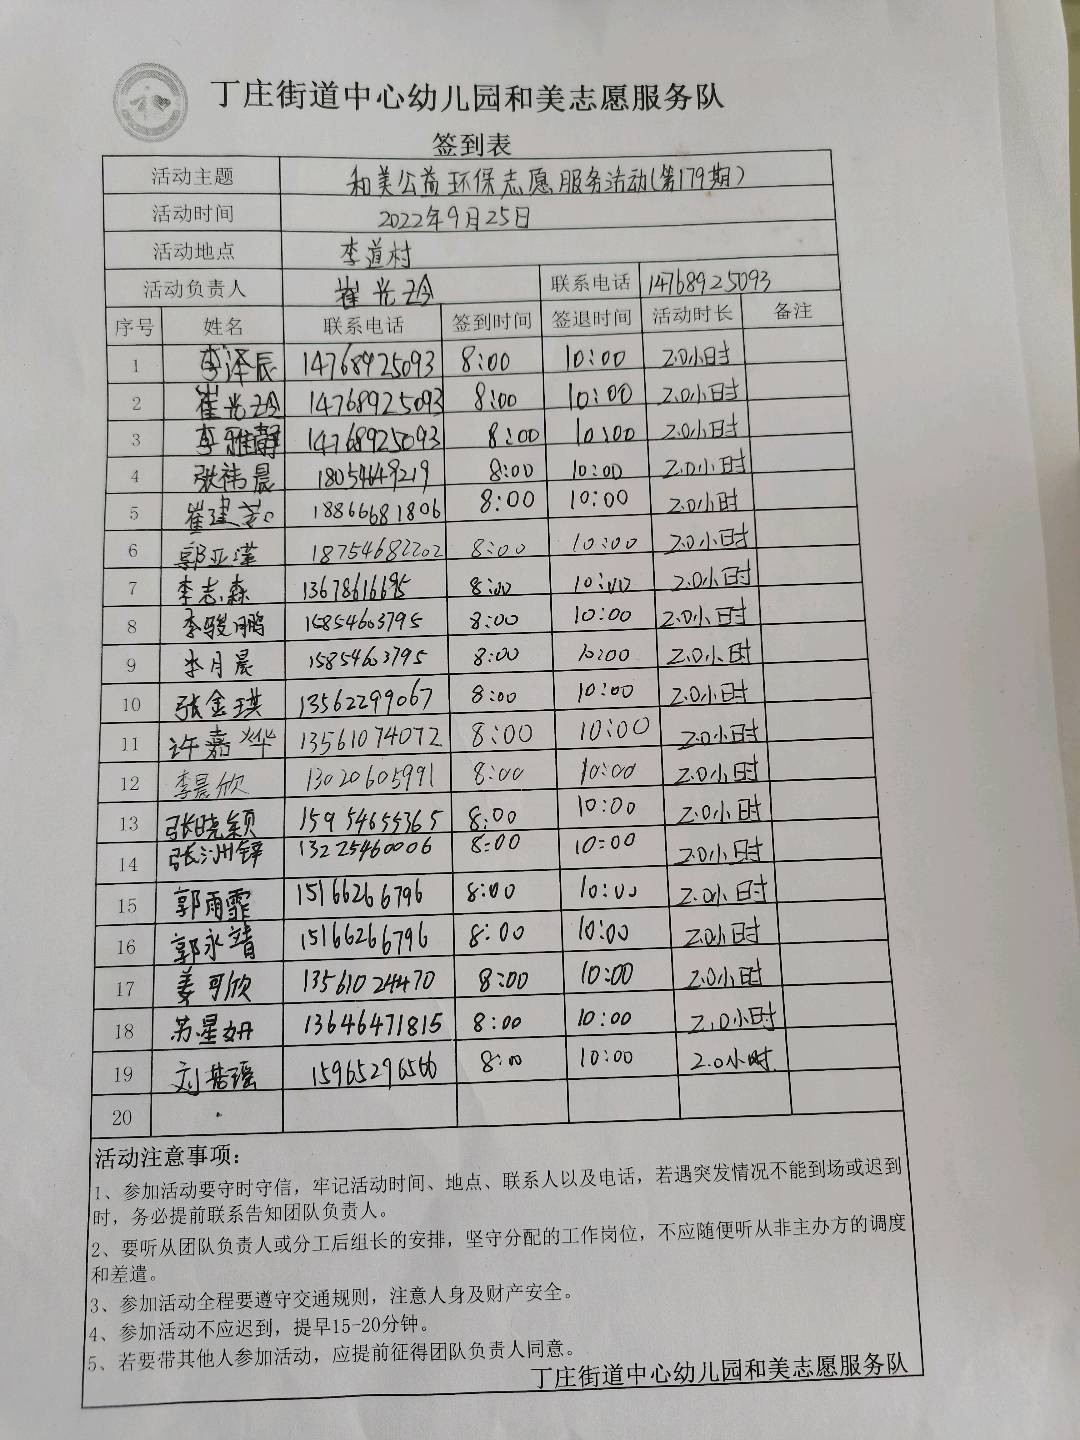 丁庄街道中心幼儿园和美志愿服务队
签到表
活动主题 和美公益环保志愿服务活动(第179期)
活动时间 2022年9月25日
活动地点 李道村
活动负责人 崔光玲 联系电话 14768925093
序号 姓名 联系电话 签到时间 签退时间 活动时长 备注
1 李泽辰 14768925093 8:00 10:00 2.0小时
2 崔光玲 14768925093 8:00 10:00 2.0小时
3 李雅静 14768925093 8:00 10:00 2.0小时
4 张祎晨 18054649219 8:00 10:00 2.0小时
5 崔建 18866681806 8:00 10:00 2.0小时
6 郭亚瑾 18754682202 8:00 10:00 2.0小时
7 李志森 13678616695 8:00 10:00 2.0小时
8 李骏鹏 15854603795 8:00 10:00 2.0小时
9 李月晨 15854603795 8:00 10:00 2.0小时
10 张金琪 13562299067 8:00 10:00 2.0小时
11 许嘉烨 13561074072 8:00 10:00 2.0小时
12 李晨欣 13020605991 8:00 10:00 2.0小时
13 张晓颖 15954655365 8:00 10:00 2.0小时
14 张洲锌 13225460006 8:00 10:00 2.0小时
15 郭雨霏 15166266796 8:00 10:00 2.0小时
16 郭永靖 15166266796 8:00 10:00 2.0小时
17 姜可欣 13561024470 8:00 10:00 2.0小时
18 苏星妍 13646471815 8:00 10:00 2.0小时
19 刘若瑶 15965296566 8:00 10:00 2.0小时
20
活动注意事项：
1、参加活动要守时守信，牢记活动时间、地点、联系人以及电话，若遇突发情况不能到场或迟到
时，务必提前联系告知团队负责人。
2、要听从团队负责人或分工后组长的安排，坚守分配的工作岗位，不应随便听从非主办方的调度
和差遣。
3、参加活动全程要遵守交通规则，注意人身及财产安全。
4、参加活动不应迟到，提早15-20分钟。
5、若要带其他人参加活动，应提前征得团队负责人同意。
丁庄街道中心幼儿园和美志愿服务队